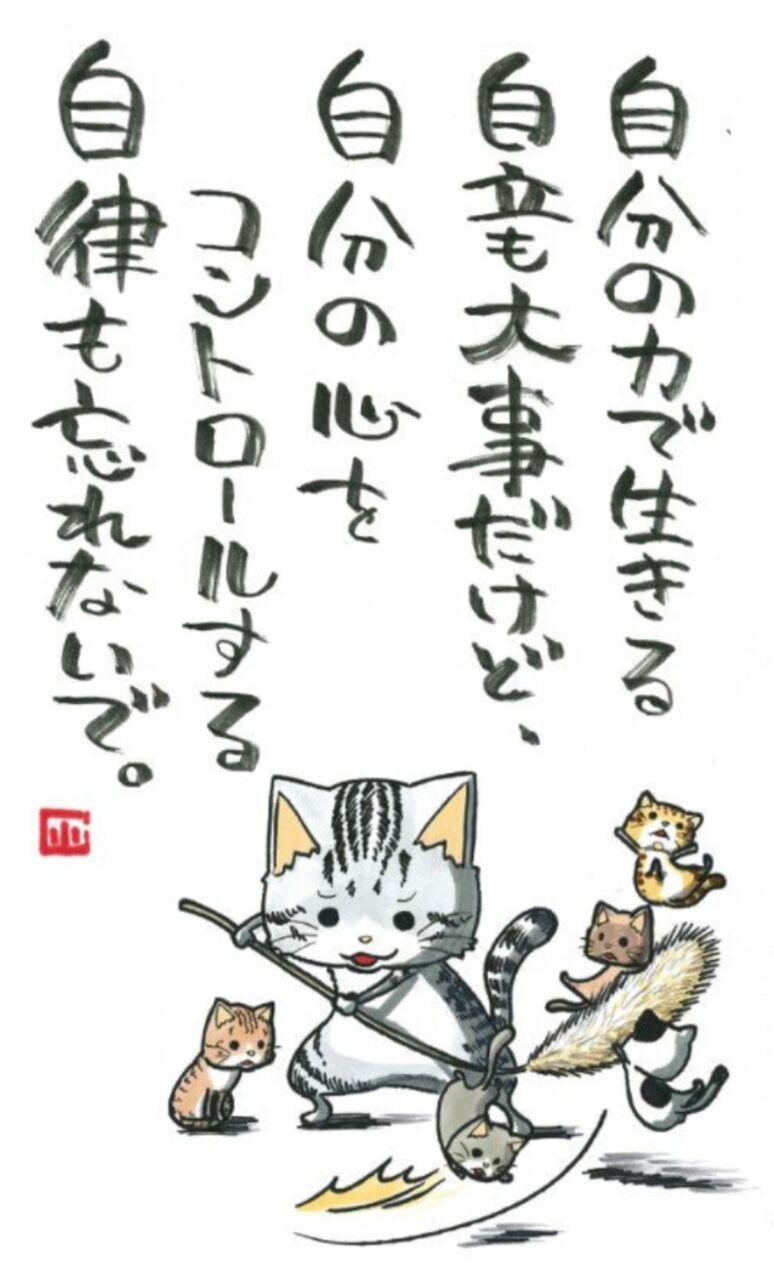 自分の力で生きる
自立も大事だけど、
自分の心を
コントロールする
自律も忘れないで。